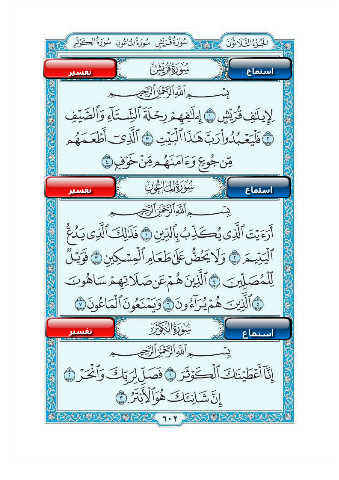 الجزء الثلاثون سورة قريش سورة الماعون سورة الكوثر
تفسير سورة قريش استماع
بسم الله الرحمن الرحيم
لِإِيلَٰفِ قُرَيْشٍ ١ إِۦلَٰفِهِمْ رِحْلَةَ ٱلشِّتَآءِ وَٱلصَّيْفِ
٢ فَلْيَعْبُدُوا۟ رَبَّ هَٰذَا ٱلْبَيْتِ ٣ ٱلَّذِىٓ أَطْعَمَهُم
مِّن جُوعٍ وَءَامَنَهُم مِّنْ خَوْفٍۭ ٤
تفسير سورة الماعون استماع
بسم الله الرحمن الرحيم
أَرَءَيْتَ ٱلَّذِى يُكَذِّبُ بِٱلدِّينِ ١ فَذَٰلِكَ ٱلَّذِى يَدُعُّ
ٱلْيَتِيمَ ٢ وَلَا يَحُضُّ عَلَىٰ طَعَامِ ٱلْمِسْكِينِ ٣ فَوَيْلٌ
لِّلْمُصَلِّينَ ٤ ٱلَّذِينَ هُمْ عَن صَلَاتِهِمْ سَاهُونَ
٥ ٱلَّذِينَ هُمْ يُرَآءُونَ ٦ وَيَمْنَعُونَ ٱلْمَاعُونَ ٧
تفسير سورة الكوثر استماع
بسم الله الرحمن الرحيم
إِنَّآ أَعْطَيْنَٰكَ ٱلْكَوْثَرَ ١ فَصَلِّ لِرَبِّكَ وَٱنْحَرْ ٢
إِنَّ شَانِئَكَ هُوَ ٱلْأَبْتَرُ ٣
٦٠٢